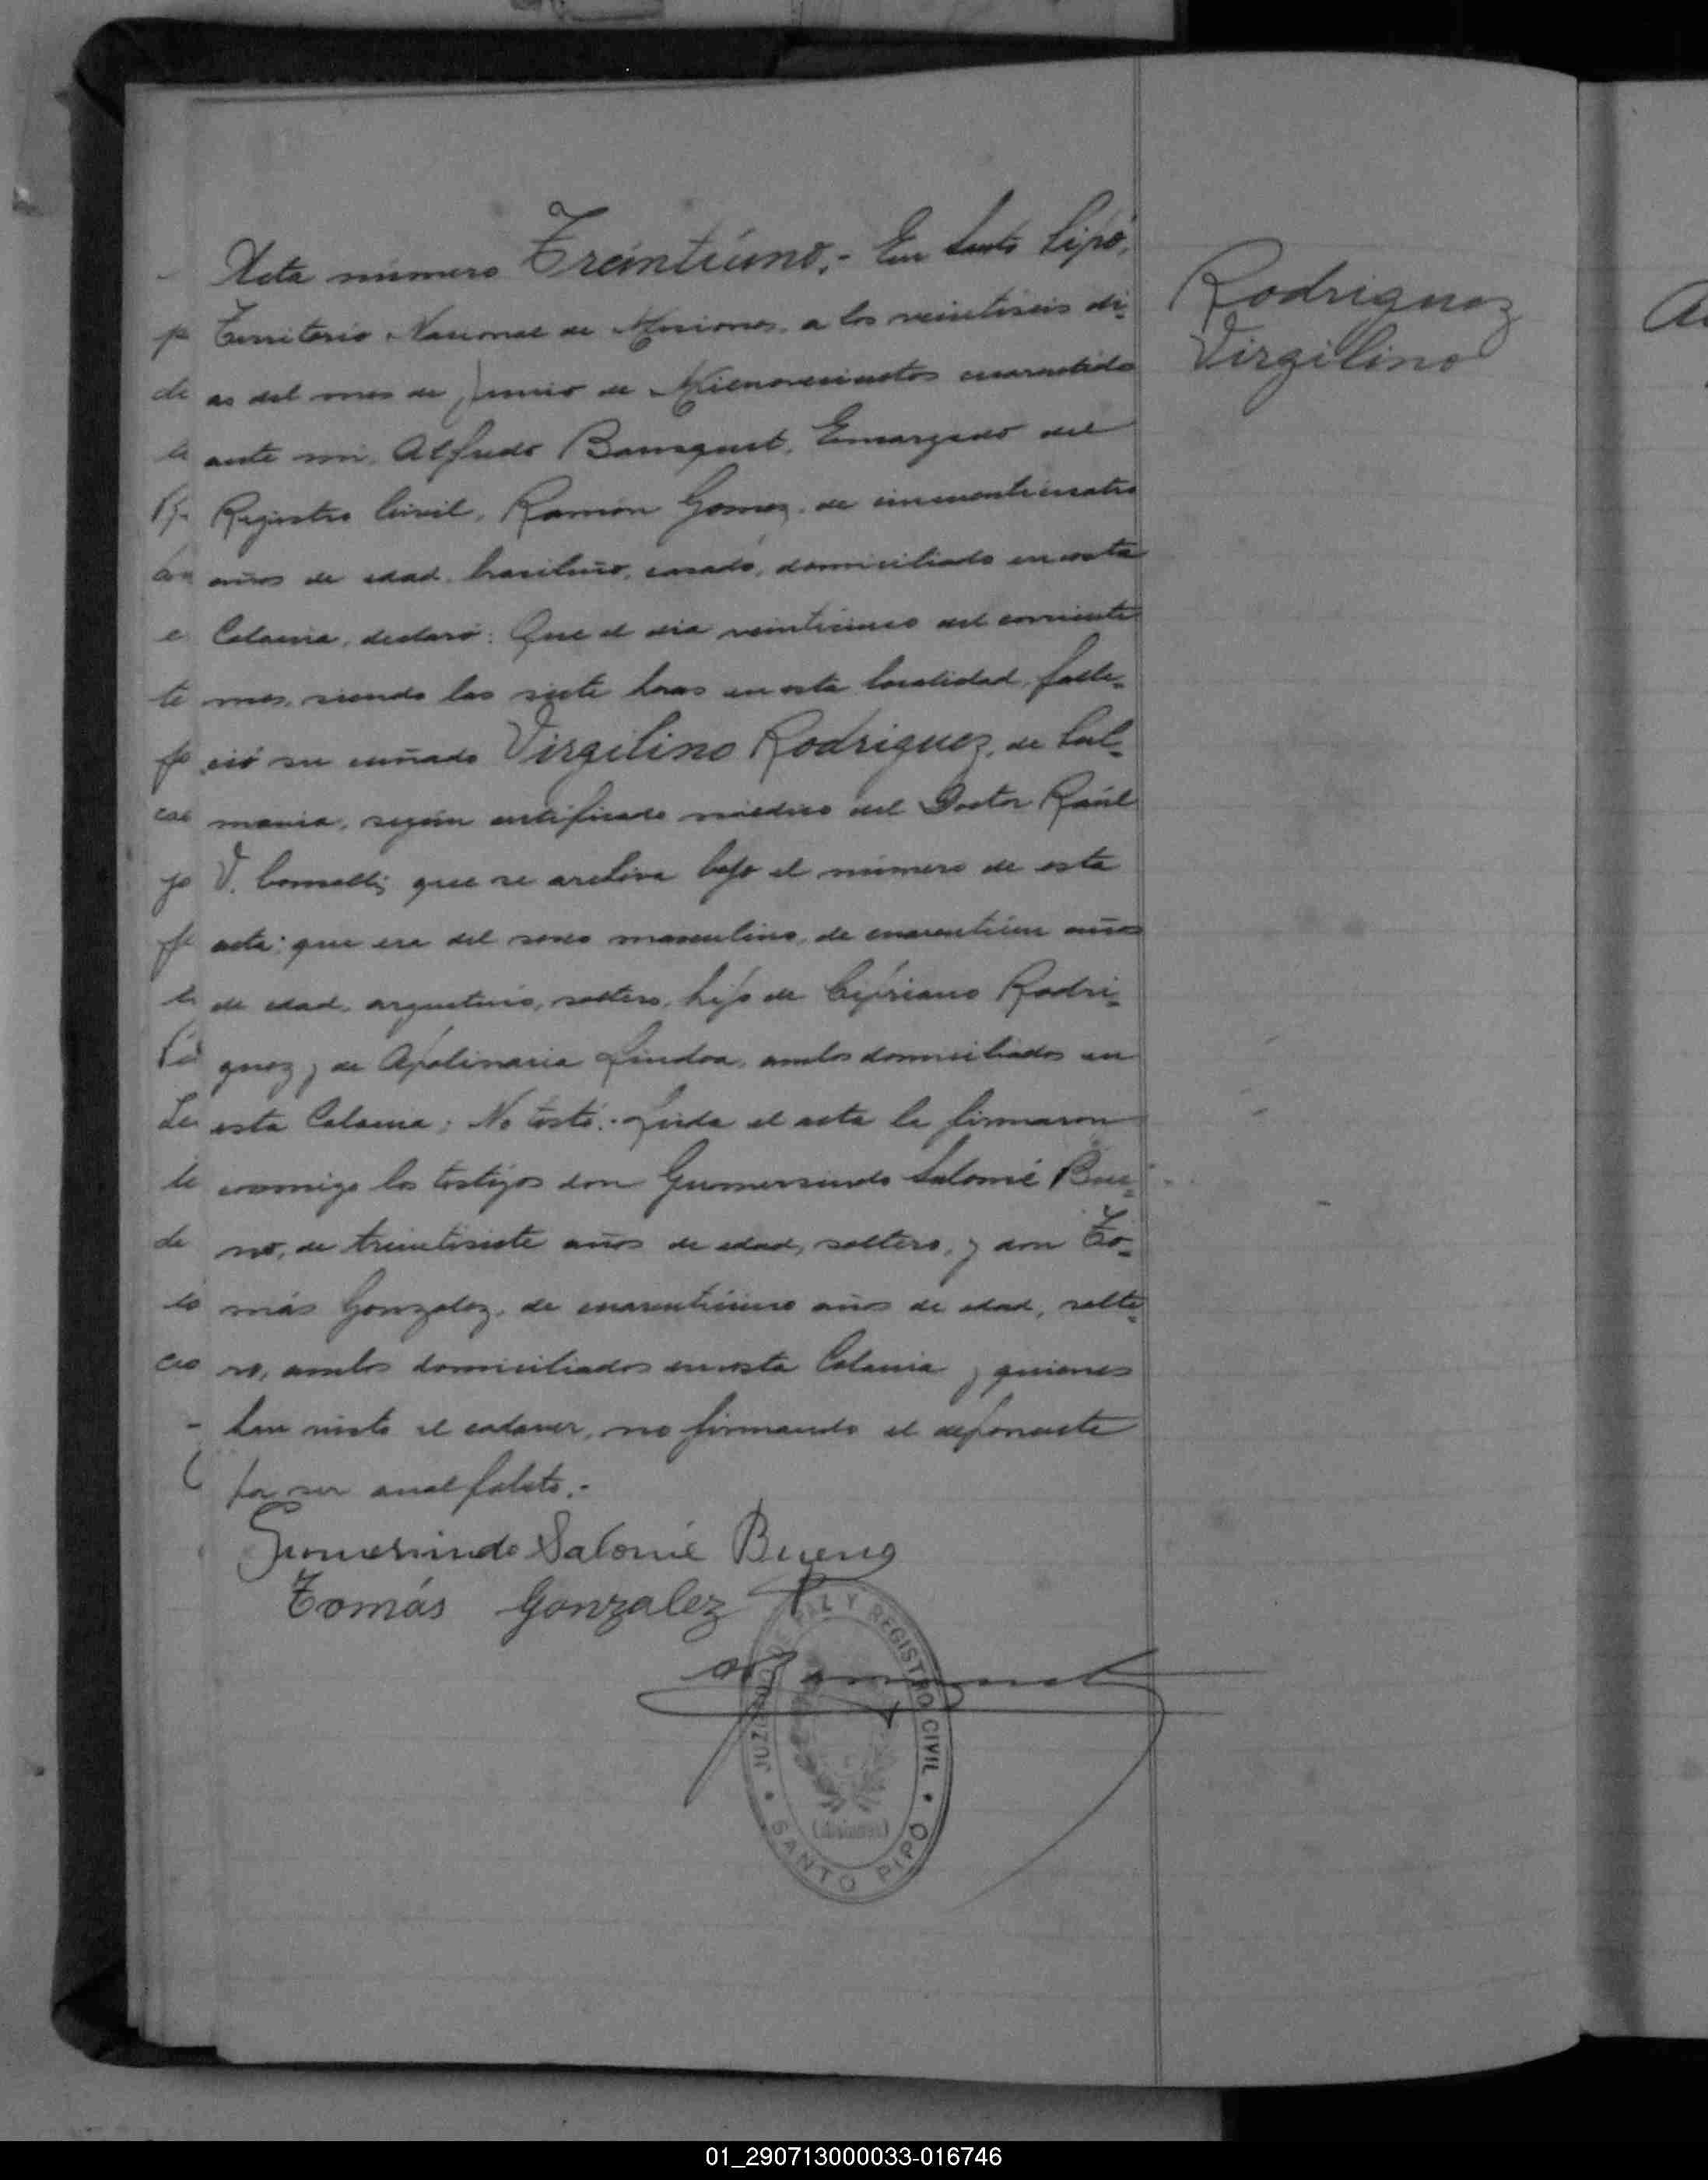 Acta número Treintiuno.- En Santo Pipó,
Territorio Nacional de Misiones, a los veintiseis di-
as del mes de Junio de Milnovecientos cuarentidos
ante mi, Alfredo Encargado del
Registro Civil, Ramón Gomez, de cincuenticuatro
años de edad, brasileño, casado, domiciliado en esta
Colonia, declaró: Que el dia veinticinco del corriente
mes, siendo las siete horas en esta localidad, falle-
ció su cuñado Virgilino Rodriguez, de
según certificado médico del Doctor Raúl
V. que se archiva bajo el número de esta
acta; que era del sexo masculino, de cuarentiun años
de edad, argentino, soltero, hijo de Cipriano Rodri-
guez y de Apolinaria Lindoa, ambos domiciliados en
esta Colonia; No testó.- Leida el acta la firmaron
conmigo los testigos don Gumersindo Salomé Bue-
no, de treintisiete años de edad, soltero, y don To-
más Gonzalez, de cuarenticinco años de edad, solte-
ro, ambos domiciliados en esta Colonia y quienes
han visto el cadaver, no firmando el deponente
por ser analfabeto.-
Gumersindo Salomé Bueno
Tomás Gonzalez
JUZGADO DE PAZ Y REGISTRO CIVIL
(Misiones)
SANTO PIPÓ
Rodriguez
Virgilino
p
de
la
e
te
cal
jo
la
Le
te
de
lo
cio
01_290713000033-016746